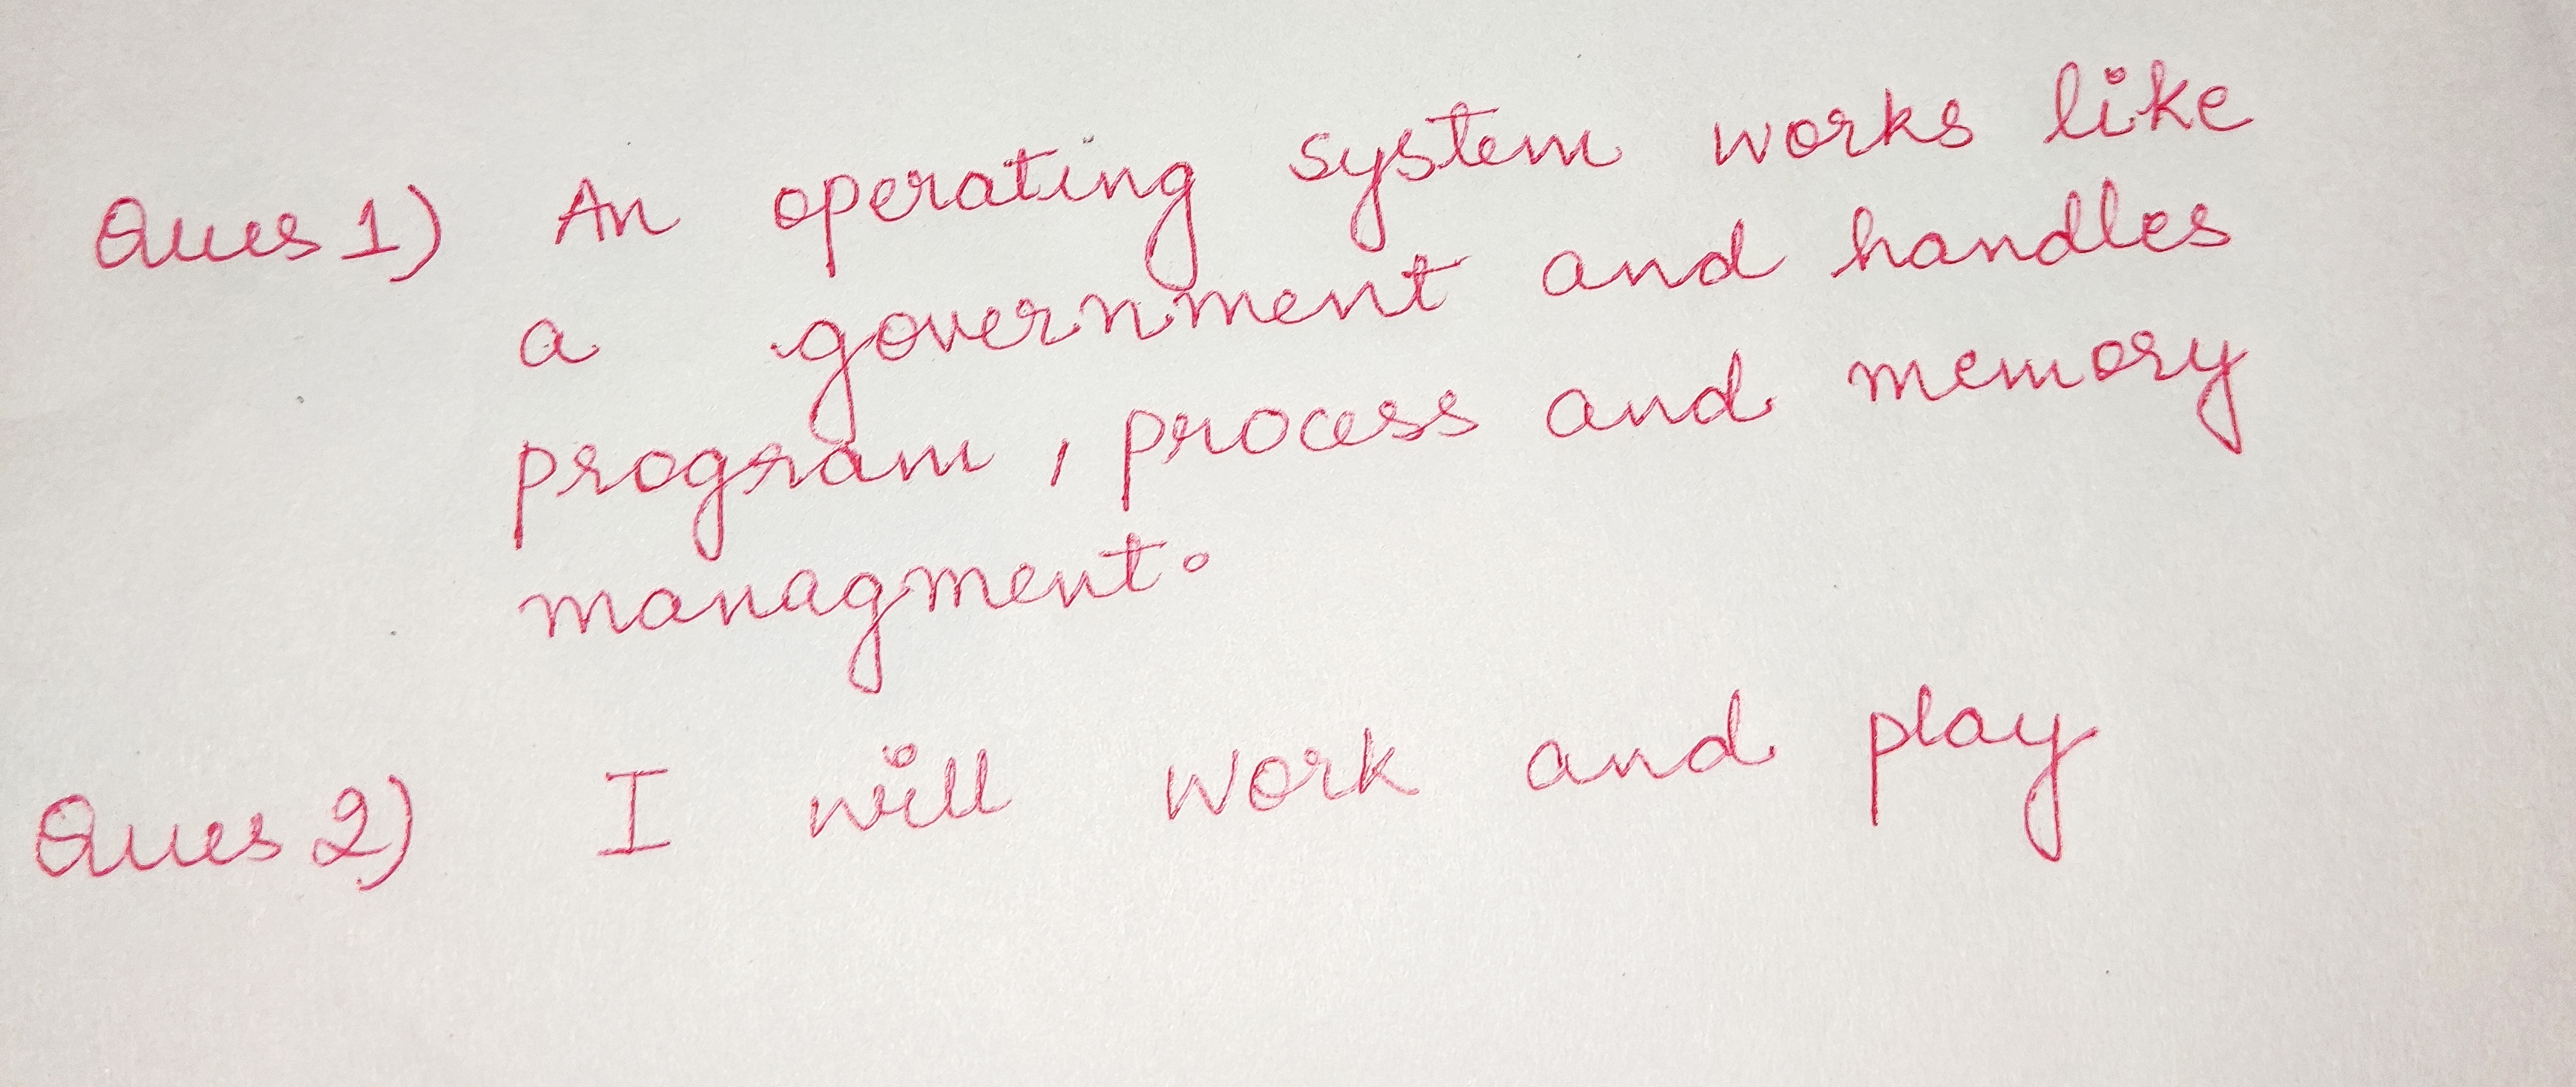 Ques 1) An operating system works like
a government and handles
program, process and memory
managment.
Ques 2) I will work and play